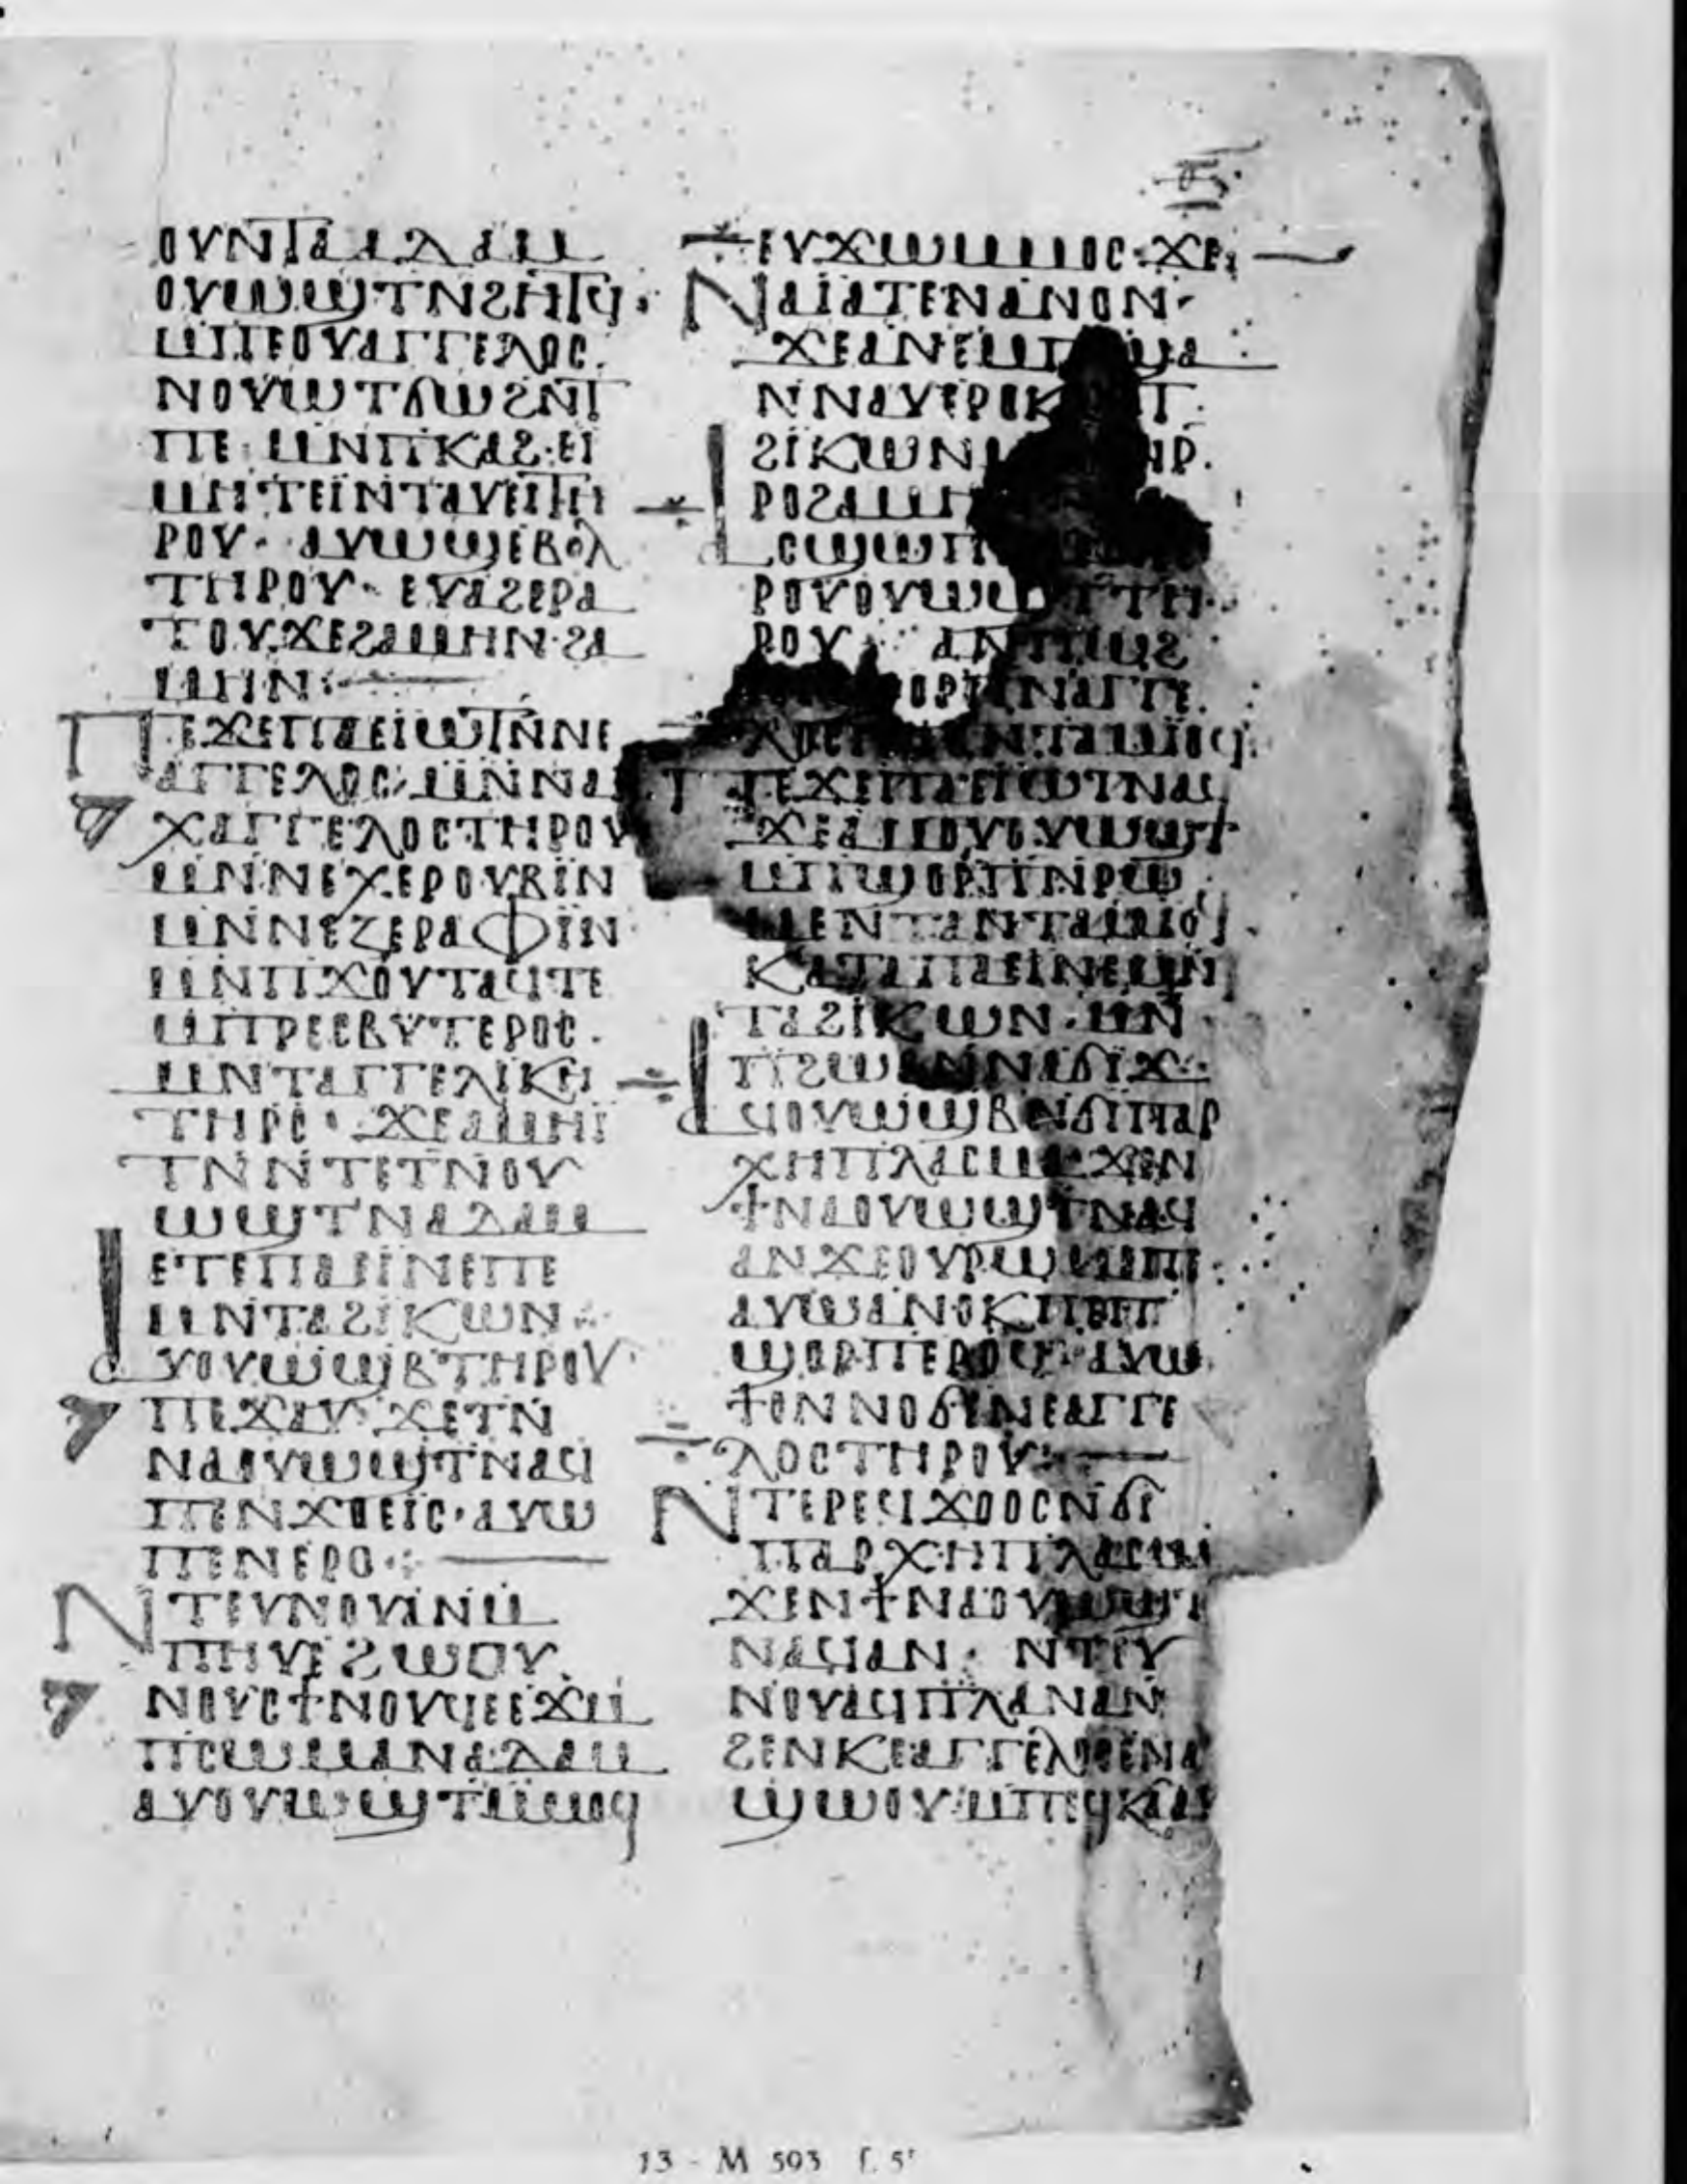 ⲑ
ⲟⲩⲛⲧⲁⲇⲁⲙ
ⲟⲩⲱϣⲧⲛϩⲏⲧϥ·
ⲙⲡⲉⲟⲩⲁⲅⲅⲉⲗⲟⲥ
ⲛⲟⲩⲱⲧϭⲱϩⲛⲧ
ⲡⲉ ⲙⲛⲡⲕⲁϩ·ⲉⲓ
ⲙⲏⲧⲉⲓⲛⲧⲁⲩⲉⲓⲧⲏ
ⲣⲟⲩ· ⲁⲩⲱϣⲉⲃⲟⲗ
ⲧⲏⲣⲟⲩ· ⲉⲩⲁϩⲉⲣⲁ
ⲧⲟⲩ·ϫⲉϩⲁⲙⲏⲛ·ϩⲁ
ⲙⲏⲛ:—
ⲡⲉϫⲉⲡⲁⲉⲓⲱⲧⲛⲛⲉ
ⲁⲅⲅⲉⲗⲟⲥ·ⲙⲛⲛⲁⲣ
ⲭⲁⲅⲅⲉⲗⲟⲥⲧⲏⲣⲟⲩ
ⲙⲛⲛⲉⲭⲉⲣⲟⲩⲃⲓⲛ
ⲙⲛⲛⲉⲍⲉⲣⲁⲫⲓⲛ
ⲙⲛⲡϫⲟⲩⲧⲁϥⲧⲉ
ⲙⲡⲣⲉⲥⲃⲩⲧⲉⲣⲟⲥ·
ⲙⲛⲧⲁⲅⲅⲉⲗⲓⲕⲏ
ⲧⲏⲣⲥ· ϫⲉⲁⲙⲏⲓ
ⲧⲛⲛⲧⲉⲧⲛⲟⲩ
ⲱϣⲧⲛⲁⲇⲁⲙ
ⲉⲧⲉⲡⲁⲉⲓⲛⲉⲡⲉ
ⲙⲛⲧⲁϩⲓⲕⲱⲛ·
ⲁⲩⲟⲩⲱϣⲃⲧⲏⲣⲟⲩ
ⲡⲉϫⲁⲩ·ϫⲉⲧⲛ
ⲛⲁⲟⲩⲱϣⲧⲛⲁϥ
ⲡⲉⲛϫⲟⲉⲓⲥ·ⲁⲩⲱ
ⲡⲉⲛⲉⲣⲟ·:—
ⲛⲧⲉⲩⲛⲟⲩⲁⲛⲙ
ⲡⲏⲩⲉϩⲱⲟⲩ
ⲛⲟⲩⲥϯⲛⲟⲩϥⲉⲉϫⲙ
ⲡⲥⲱⲙⲁⲛⲁⲇⲁⲙ
ⲁⲩⲟⲩⲱϣⲧⲙⲙⲟϥ
ⲉⲩϫⲱⲙⲙⲟⲥ·ϫⲉ
ⲛⲁⲓⲁⲧⲉⲛⲁⲛⲟⲛ·
ϫⲉⲁⲛⲉⲙⲡϣⲁ
ⲛⲛⲁⲩⲉⲣⲟⲕ
ϩⲓⲕⲱⲛ
ⲣⲟϩⲁⲙⲏ
ⲁⲥϣⲱⲡ
ⲣⲟⲩⲟⲩⲱϣⲧⲧⲏ
ⲣⲟⲩ· ⲁⲛⲡⲱϩ
ⲟⲣⲡⲛⲁⲅⲅⲉ
ⲗⲟⲥ ⲛⲧⲁⲙⲓⲟϥ
ⲡⲉϫⲉⲡⲁⲉⲓⲱⲧⲛⲁϥ
ϫⲉⲁⲙⲟⲩⲟⲩⲱϣⲧ
ⲙⲡϣⲟⲣⲡⲛⲣⲱ
ⲙⲉⲛⲧⲁⲛⲧⲁⲙⲓⲟϥ
ⲕⲁⲧⲁⲡⲁⲉⲓⲛⲉⲙⲛ
ⲧⲁϩⲓⲕⲱⲛ·ⲙⲛ
ⲡϩⲱⲃⲛⲛⲁϭⲓϫ·
ⲁϥⲟⲩⲱϣⲃⲛϭⲓⲡⲁⲣ
ⲭⲏⲡⲗⲁⲥⲙⲁ·ϫⲉⲛ
ϯⲛⲁⲟⲩⲱϣⲧⲛⲁϥ
ⲁⲛϫⲉⲟⲩⲣⲱⲙⲉⲡⲉ·
ⲁⲩⲱⲁⲛⲟⲕⲡⲉⲡ
ϣⲟⲣⲡⲉⲣⲟϥ·ⲁⲩⲱ
ϯⲟⲛⲛⲟϭⲛⲉⲁⲅⲅⲉ
ⲗⲟⲥⲧⲏⲣⲟⲩ:—
ⲛⲧⲉⲣⲉϥϫⲟⲟⲥⲛϭⲓ
ⲡⲁⲣⲭⲏⲡⲗⲁⲥⲙⲁ
ϫⲉⲛϯⲛⲁⲟⲩⲱϣⲧ
ⲛⲁϥⲁⲛ· ⲛⲧⲉⲩ
ⲛⲟⲩⲁϥⲡⲗⲁⲛⲁⲛ
ϩⲉⲛⲕⲉⲁⲅⲅⲉⲗⲟⲥⲉⲛⲁ
ϣⲱⲟⲩ·ⲙⲡⲉϥⲕⲁ
13 - M 593 f. 5r